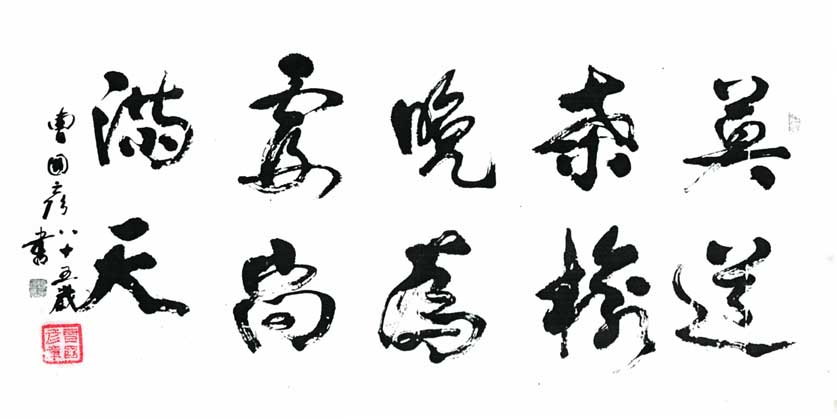 莫道
桑榆
晚為
霞尚
滿天
曹国彦八十五歲書